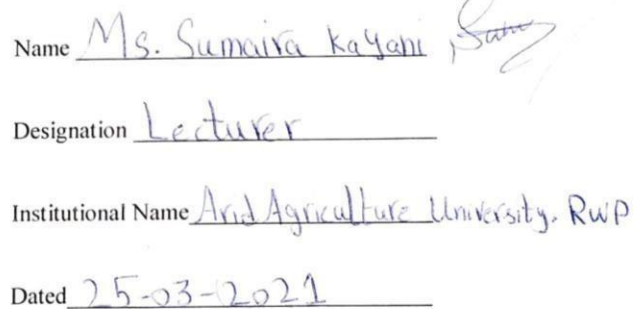 Name Ms. Sumaira Kayani
Designation Lecturer
Institutional Name Arid Agriculture University. RWP
Dated 25-03-2021